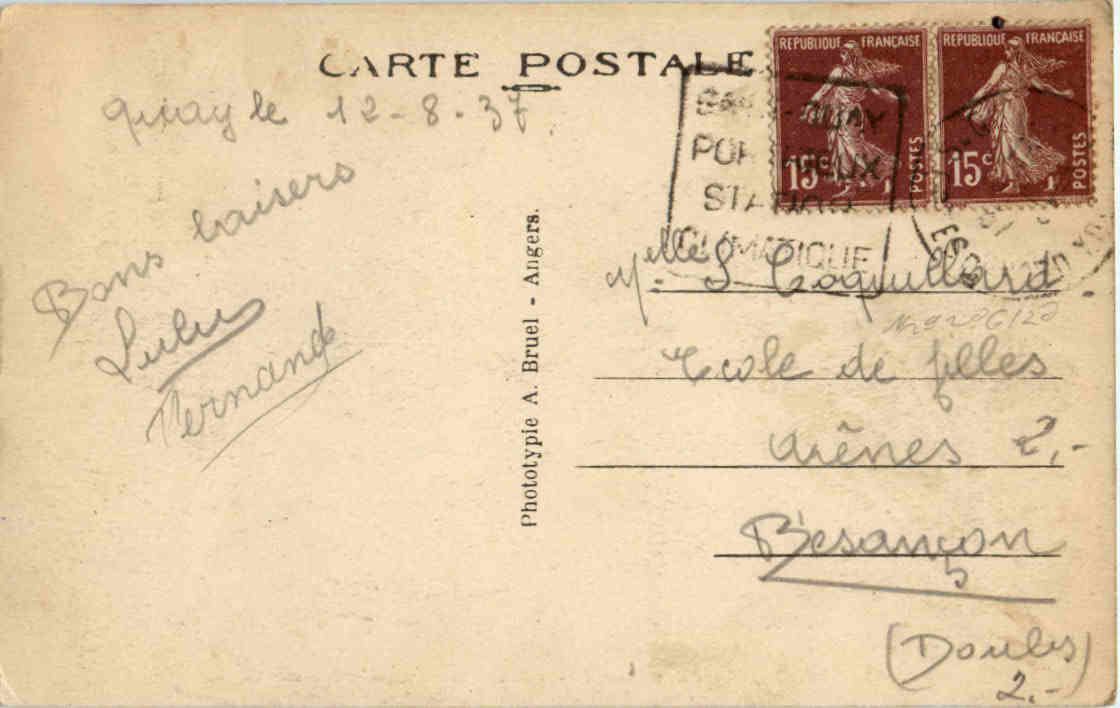 CARTE POSTALE
REPUBLIQUE FRANÇAISE
15c
POSTES
REPUBLIQUE FRANÇAISE
15c
POSTES
QUAY
PORTRIEUX
STATION
CLIMATIQUE
Quay le 12-8-37.
Bons baisers
Lulu
Fernande
Phototypie A. Bruel - Angers.
Melle S. Coquillard
Ecole de filles
Arènes 2.-
Besançon
(Doubs)
2.-